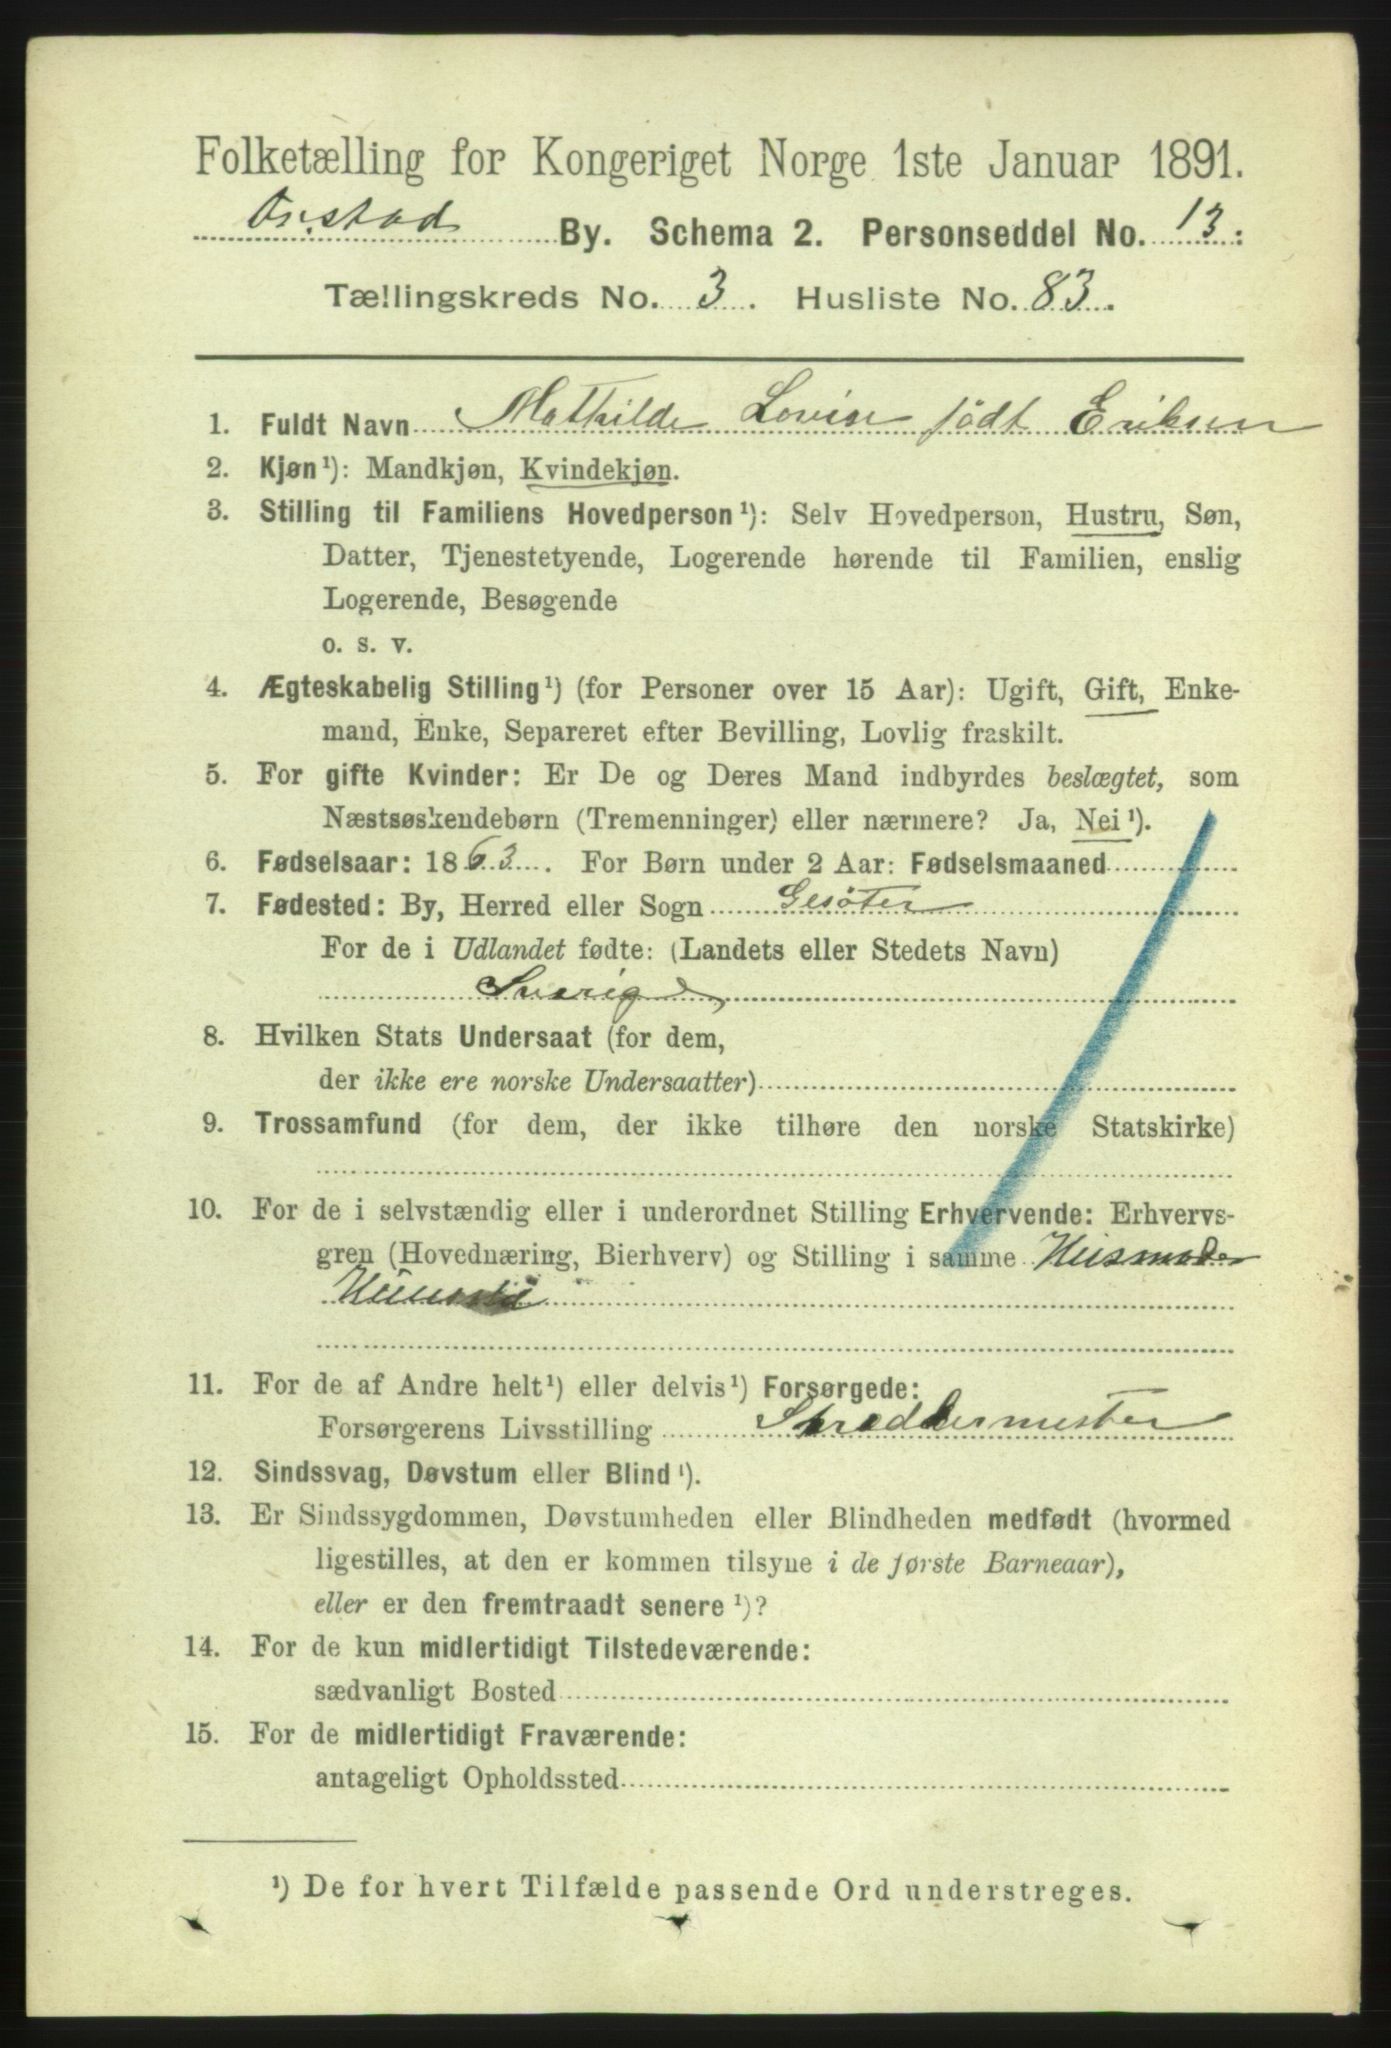 Folketælling for Kongeriget Norge 1ste Januar 1891.
By. Schema 2. Personseddel No. 13.
Tællingskreds No. 3. Husliste No. 83.
1. Fuldt Navn Mathilde Lovise født Eriksen
2. Kjøn¹): Mandkjøn, Kvindekjøn.
3. Stilling til Familiens Hovedperson¹): Selv Hovedperson, Hustru, Søn,
Datter, Tjenestetyende, Logerende hørende til Familien, enslig
Logerende, Besøgende
o. s. v.
4. Ægteskabelig Stilling¹) (for Personer over 15 Aar): Ugift, Gift, Enke-
mand, Enke, Separeret efter Bevilling, Lovlig fraskilt.
5. For gifte Kvinder: Er De og Deres Mand indbyrdes beslægtet, som
Næstsøskendebørn (Tremenninger) eller nærmere? Ja, Nei¹).
6. Fødselsaar: 1863. For Børn under 2 Aar: Fødselsmaaned
7. Fødested: By, Herred eller Sogn Gesöter
For de i Udlandet fødte: (Landets eller Stedets Navn)
Sverige
8. Hvilken Stats Undersaat (for dem,
der ikke ere norske Undersaatter)
9. Trossamfund (for dem, der ikke tilhøre den norske Statskirke)
10. For de i selvstændig eller i underordnet Stilling Erhvervende: Erhvervs-
gren (Hovednæring, Bierhverv) og Stilling i samme Husmoder
11. For de af Andre helt¹) eller delvis¹) Forsørgede:
Forsørgerens Livsstilling Skreddermester
12. Sindssvag, Døvstum eller Blind¹).
13. Er Sindssygdommen, Døvstumheden eller Blindheden medfødt (hvormed
ligestilles, at den er kommen tilsyne i de første Barneaar),
eller er den fremtraadt senere¹)?
14. For de kun midlertidigt Tilstedeværende:
sædvanligt Bosted
15. For de midlertidigt Fraværende:
antageligt Opholdssted
¹) De for hvert Tilfælde passende Ord understreges.